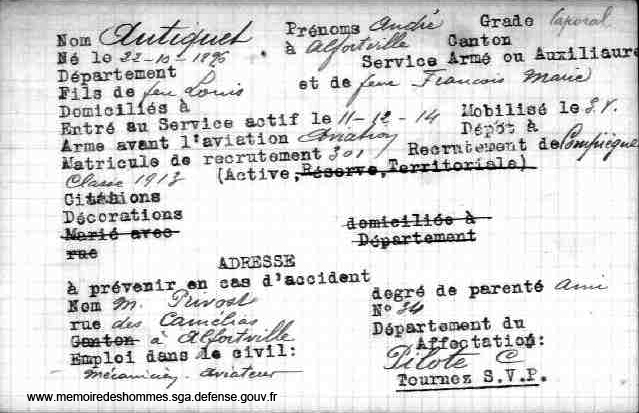 Nom Antiquet Prénoms André Grade Caporal
Né le 22-10-1896 à Alfortville Canton
Département Service Armé ou Auxiliaire
Fils de feu Louis et de feue Francois Marie
Domiciliés à
Entré au Service actif le 11-12-14 Mobilisé le S.V.
Arme avant l'aviation Aviation Dépôt à
Matricule de recrutement 301 Recrutement de Compiègne
Classe 1913 (Active, Réserve, Territoriale)
Citations
Décorations
Marié avec domiciliés à
rue Département
ADRESSE
à prévenir en cas d'accident
Nom M. Prevost degré de parenté Ami
rue des Camélias N° 34
Canton à Alfortville Département du
Emploi dans le civil: Affectation:
Mécanicien-aviateur Pilote C
Tournez S.V.P.
www.memoiredeshommes.sga.defense.gouv.fr